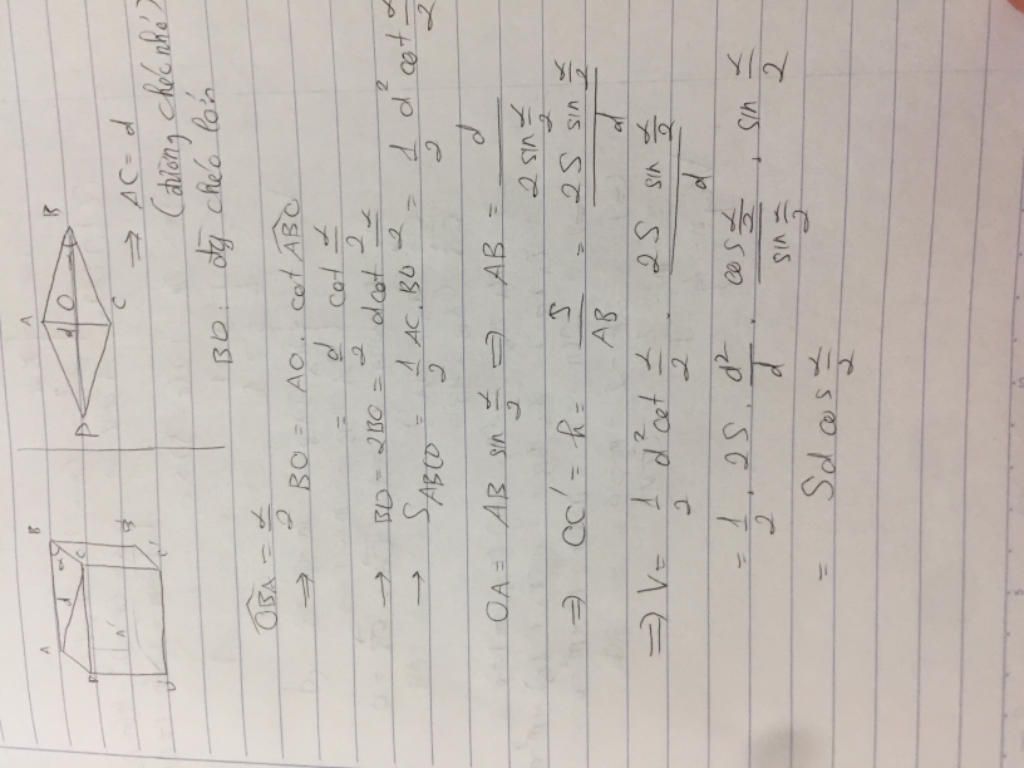 A B
d α
C
D
A'
B'
C'
D'
A
D d O B
C
⇒ AC = d
(đường chéo nhỏ)
BD: đg chéo lớn
OBA = α/2
⇒ BO = AO. cot ABO
= d/2 cot α/2
→ BD = 2BO = d cot α/2
→ S ABCD = 1/2 AC. BD = 1/2 d² cot α/2
OA = AB sin α/2 ⇒ AB = d/(2 sin α/2)
⇒ CC' = h = S/AB = 2S sin α/2 / d
⇒ V = 1/2 d² cot α/2 . 2S sin α/2 / d
= 1/2 . 2S . d²/d . cos α/2 / sin α/2 . sin α/2
= Sd cos α/2